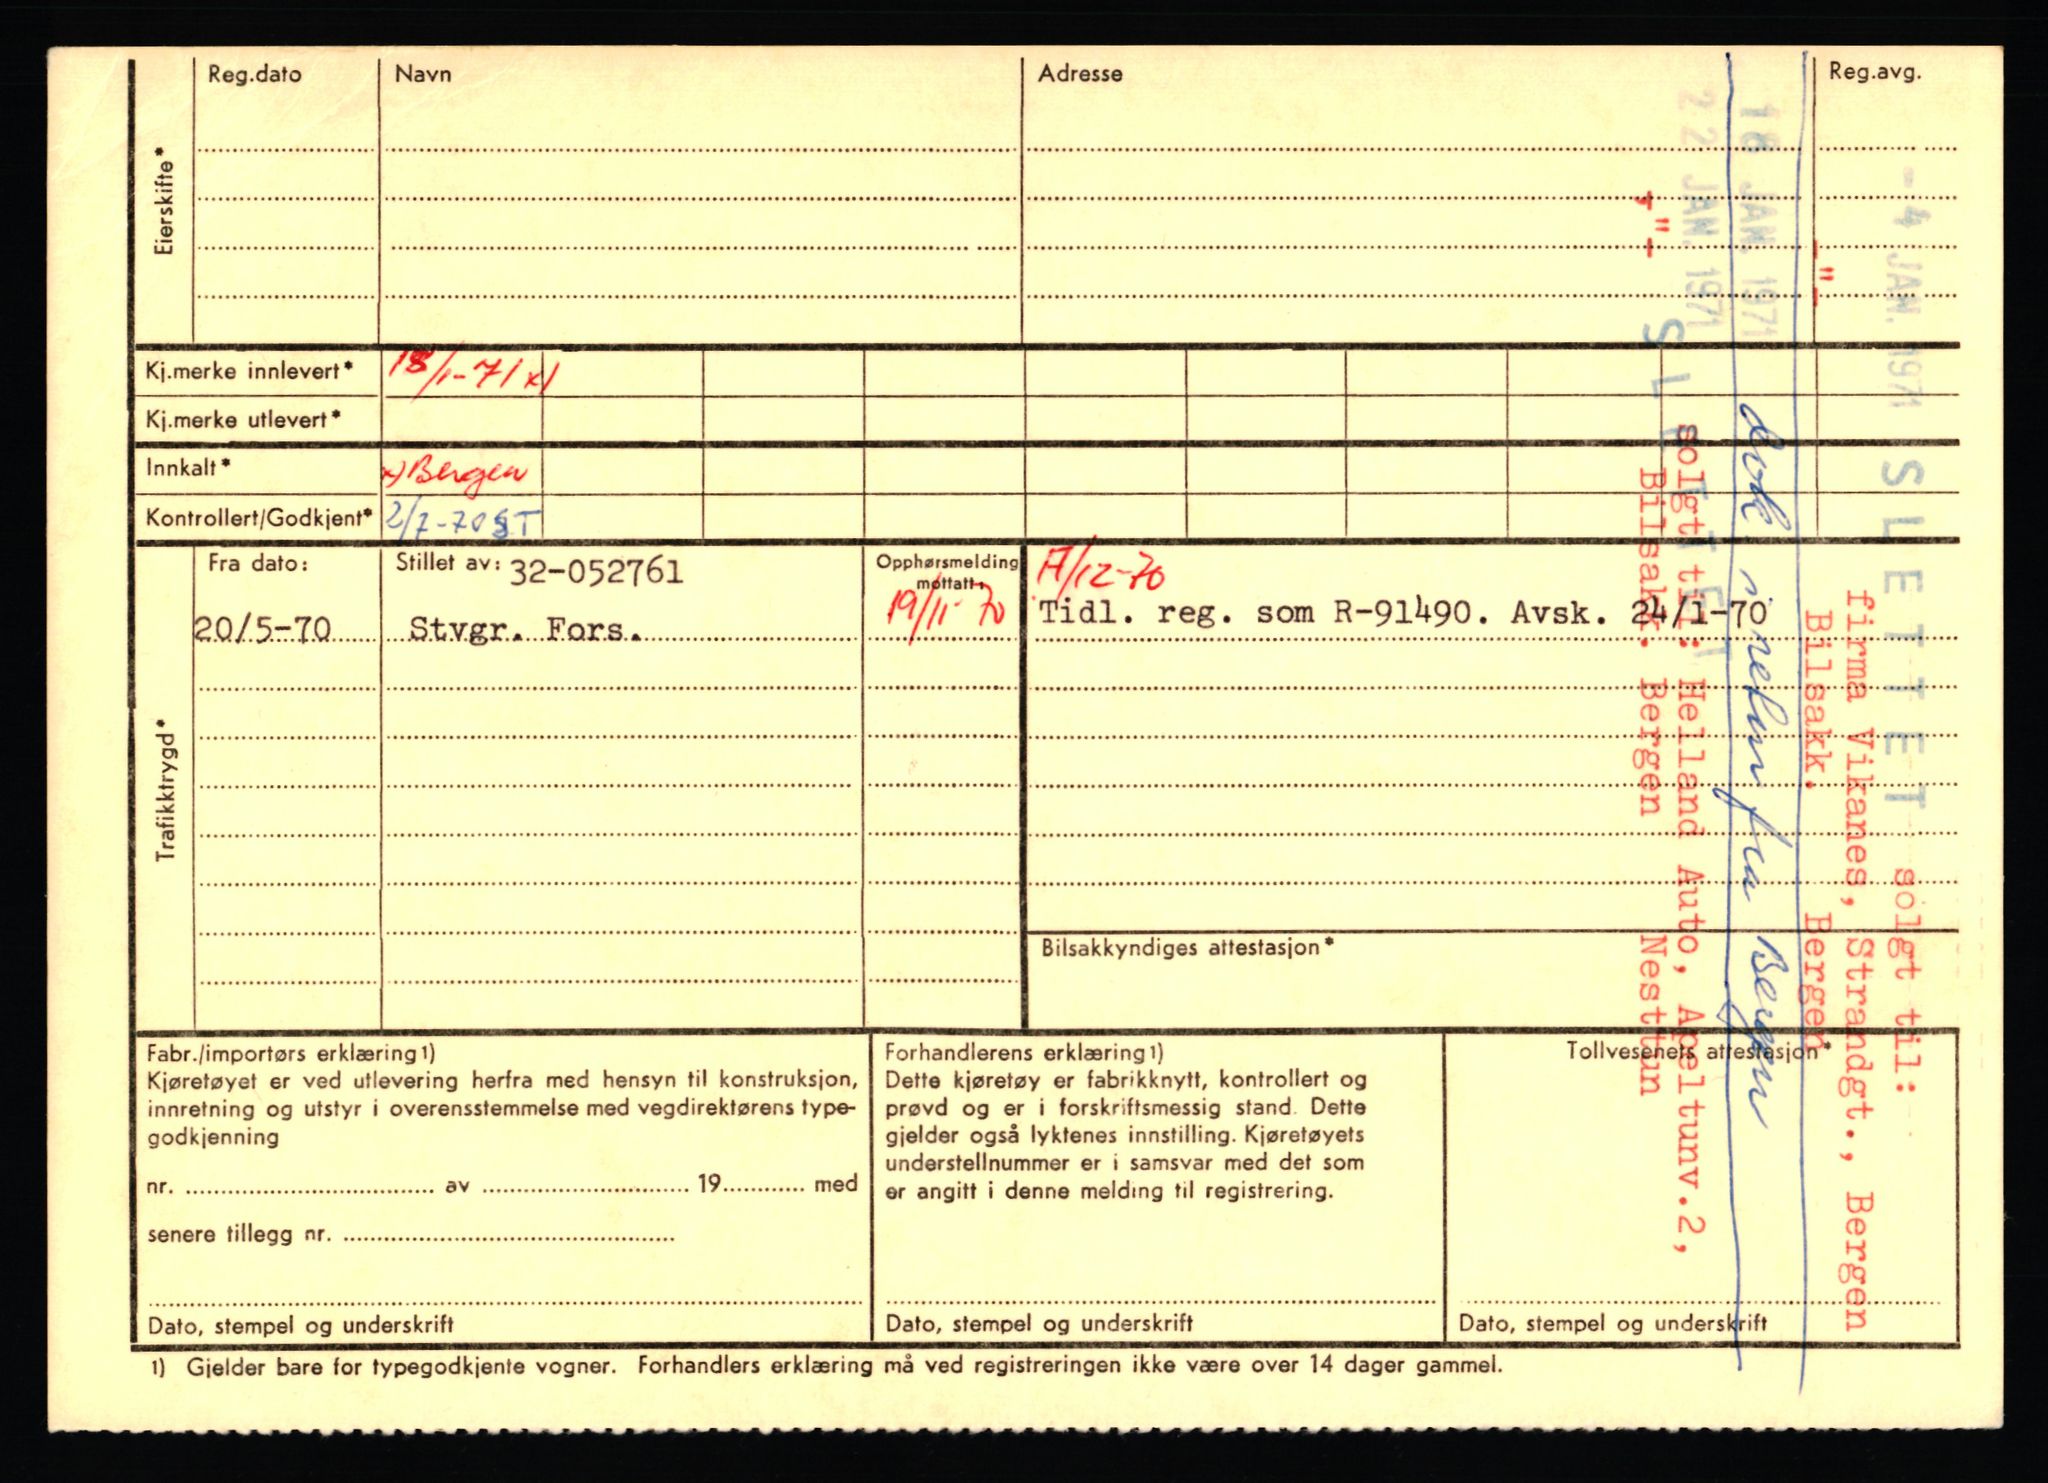 Reg.dato Navn Adresse Reg.avg.
Eierskifte*
Kj.merke innlevert* 18/1-71 x)
Kj.merke utlevert*
Innkalt* x) Bergen
Kontrollert/Godkjent* 2/7-70 ST
Trafikktrygd*
Fra dato: Stillet av: 32-052761 Opphørsmelding mottatt:
20/5-70 Stvgr. Fors. 19/11-70
17/12-70
Tidl. reg. som R-91490. Avsk. 24/1-70
Bilsakkyndiges attestasjon*
Fabr./importørs erklæring 1)
Kjøretøyet er ved utlevering herfra med hensyn til konstruksjon,
innretning og utstyr i overensstemmelse med vegdirektørens type-
godkjenning
nr. av 19 med
senere tillegg nr.
Dato, stempel og underskrift
Forhandlerens erklæring 1)
Dette kjøretøy er fabrikknytt, kontrollert og
prøvd og er i forskriftsmessig stand. Dette
gjelder også lyktenes innstilling. Kjøretøyets
understellnummer er i samsvar med det som
er angitt i denne melding til registrering.
Dato, stempel og underskrift
Tollvesenets attestasjon*
Dato, stempel og underskrift
1) Gjelder bare for typegodkjente vogner. Forhandlers erklæring må ved registreringen ikke være over 14 dager gammel.
- 4 JAN. 1971 SLETTET solgt til:
firma Vikanes, Strandgt., Bergen
-"- Bilsakk. Bergen
18 JAN. 1971
i retur fra Bergen
22 JAN. 1971 solgt til: Helland Auto, Apeltunv.2,
SLETTET
-"- Bilsakk. Bergen Nesttun